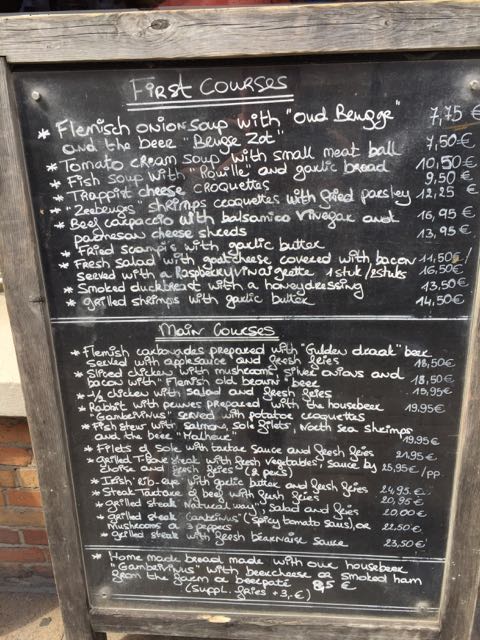 First Courses
* Flemisch onionsoup with "oud Brugge" 7,75 €
and the beer "Brugge Zot"
* Tomato cream soup with small meat ball 7,50€
* Fish soup with "Rouille" and garlic bread 10,50€
* Trappist cheese croquettes 9,50 €
* "Zeebruges" shrimps croquettes with fried parsley 12,25 €
* Beef carpaccio with balsamico vinegar and 16,95 €
parmesan cheese shreds
* Fried scampi's with garlic butter 13,95€
* Fresh salad with goatcheese covered with bacon 11,50€/
served with a Raspberryvinaigrette 1 stuk/2stuks 16,50€
* Smoked duckbreast with a honeydressing 13,50€
* grilled shrimps with garlic butter 14,50€
Main Courses
* Flemish carbonades prepared with "Gulden draak" beer
served with applesauce and fresh fries 18,50€
* Sliced chicken with mushrooms, silver onions and
bacon with "Flemish old brown" beer 18,50€
* 1/2 chicken with salad and fresh fries 15,95€
* Rabbit with prunes prepared with the housebeer
"Gambrivinus" served with potatoe croquettes 19,95€
* Fish stew with salmon, sole filets, North sea shrimps
and the beer "Malheur" 19,95€
* Filets of Sole with tartar sauce and fresh fries 21,95€
* grilled T-bone steak with fresh vegetables, sauce by
choise and fresh fries (2 pers) 25,95€/pp
* Irish rib-eye with garlic butter and fresh fries 24,95 €
* Steak Tartare of beef with fresh fries 20,95 €
* grilled steak "natural way", salad and fresh fries 20,00€
* grilled steak "Gambrinus" (spicy tomato saus), or
mushrooms or 3 peppers 22,50€
* grilled steak with fresh bearnaise sauce 23,50€
* Home made bread made with our housebeer
"Gambrivinus" with beercheese or smoked ham
from the farm or beerpaté 8,5 €
(suppl. fries +3,-€)